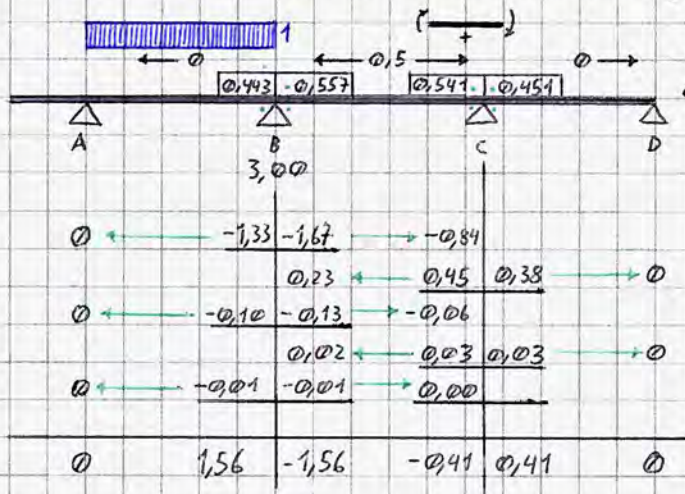 1
+
0 0,5 0
0,443 0,557 0,541 0,451
A B C D
3,00
0 -1,33 -1,67 -0,84
0,23 0,45 0,38 0
0 -0,10 -0,13 -0,06
0,02 0,03 0,03 0
0 -0,01 -0,01 0,00
0 1,56 -1,56 -0,41 0,41 0